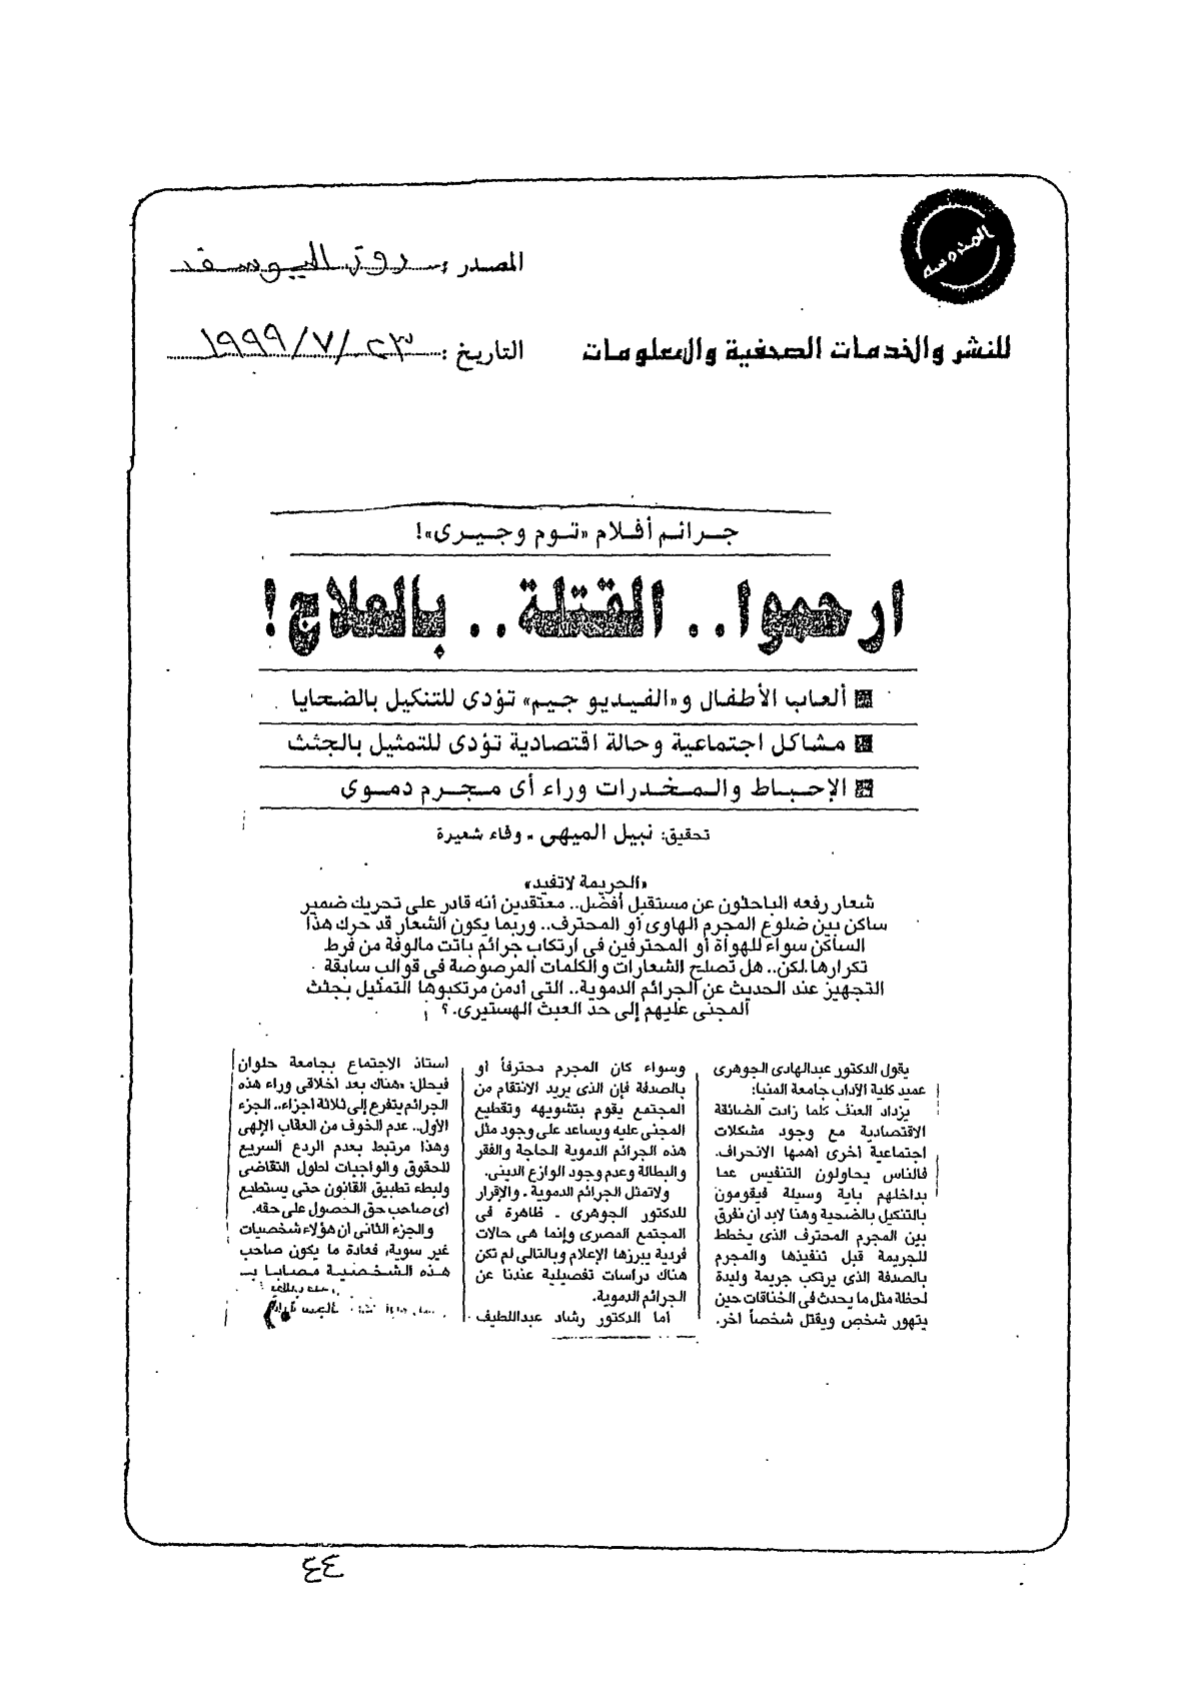 المحروسة
المصدر : روز اليوسف
للنشر والخدمات الصحفية والمعلومات
التاريخ : ٢٣/٧/١٩٩٩
جرائم أفلام «توم وجيرى»!
ارحموا.. القتلة.. بالعلاج!
ألعاب الأطفال و«الفيديو جيم» تؤدى للتنكيل بالضحايا
مشاكل اجتماعية وحالة اقتصادية تؤدى للتمثيل بالجثث
الإحباط والمخدرات وراء أى مجرم دموى
تحقيق: نبيل الميهى - وفاء شعيرة
«الجريمة لاتفيد»
شعار رفعه الباحثون عن مستقبل أفضل.. معتقدين أنه قادر على تحريك ضمير
ساكن بين ضلوع المجرم الهاوى أو المحترف.. وربما يكون الشعار قد حرك هذا
الساكن سواء للهواة أو المحترفين فى ارتكاب جرائم باتت مالوفة من فرط
تكرارها.لكن.. هل تصلح الشعارات والكلمات المرصوصة فى قوالب سابقة
التجهيز عند الحديث عن الجرائم الدموية.. التى أدمن مرتكبوها التمثيل بجثث
المجنى عليهم إلى حد العبث الهستيرى.؟
يقول الدكتور عبدالهادى الجوهرى
عميد كلية الآداب جامعة المنيا:
يزداد العنف كلما زادت الضائقة
الاقتصادية مع وجود مشكلات
اجتماعية أخرى أهمها الانحراف.
فالناس يحاولون التنفيس عما
بداخلهم باية وسيلة فيقومون
بالتنكيل بالضحية وهنا لابد أن نفرق
بين المجرم المحترف الذى يخطط
للجريمة قبل تنفيذها والمجرم
بالصدفة الذى يرتكب جريمة وليدة
لحظة مثل ما يحدث فى الخناقات حين
يتهور شخص ويقتل شخصاً آخر.
وسواء كان المجرم محترفاً أو
بالصدفة فإن الذى يريد الانتقام من
المجتمع يقوم بتشويهه وتقطيع
المجنى عليه ويساعد على وجود مثل
هذه الجرائم الدموية الحاجة والفقر
والبطالة وعدم وجود الوازع الدينى.
ولاتمثل الجرائم الدموية - والإقرار
للدكتور الجوهرى - ظاهرة فى
المجتمع المصرى وإنما هى حالات
فردية يبرزها الإعلام وبالتالى لم تكن
هناك دراسات تفصيلية عندنا عن
الجرائم الدموية.
أما الدكتور رشاد عبداللطيف
أستاذ الاجتماع بجامعة حلوان
فيحلل: «هناك بعد أخلاقى وراء هذه
الجرائم يتفرع إلى ثلاثة أجزاء.. الجزء
الأول.. عدم الخوف من العقاب الإلهى
وهذا مرتبط بعدم الردع السريع
للحقوق والواجبات لطول التقاضى
ولبطء تطبيق القانون حتى يستطيع
أى صاحب حق الحصول على حقه.
والجزء الثانى أن هؤلاء شخصيات
غير سوية، فعادة ما يكون صاحب
هذه الشخصية مصابا بـ
٤٤